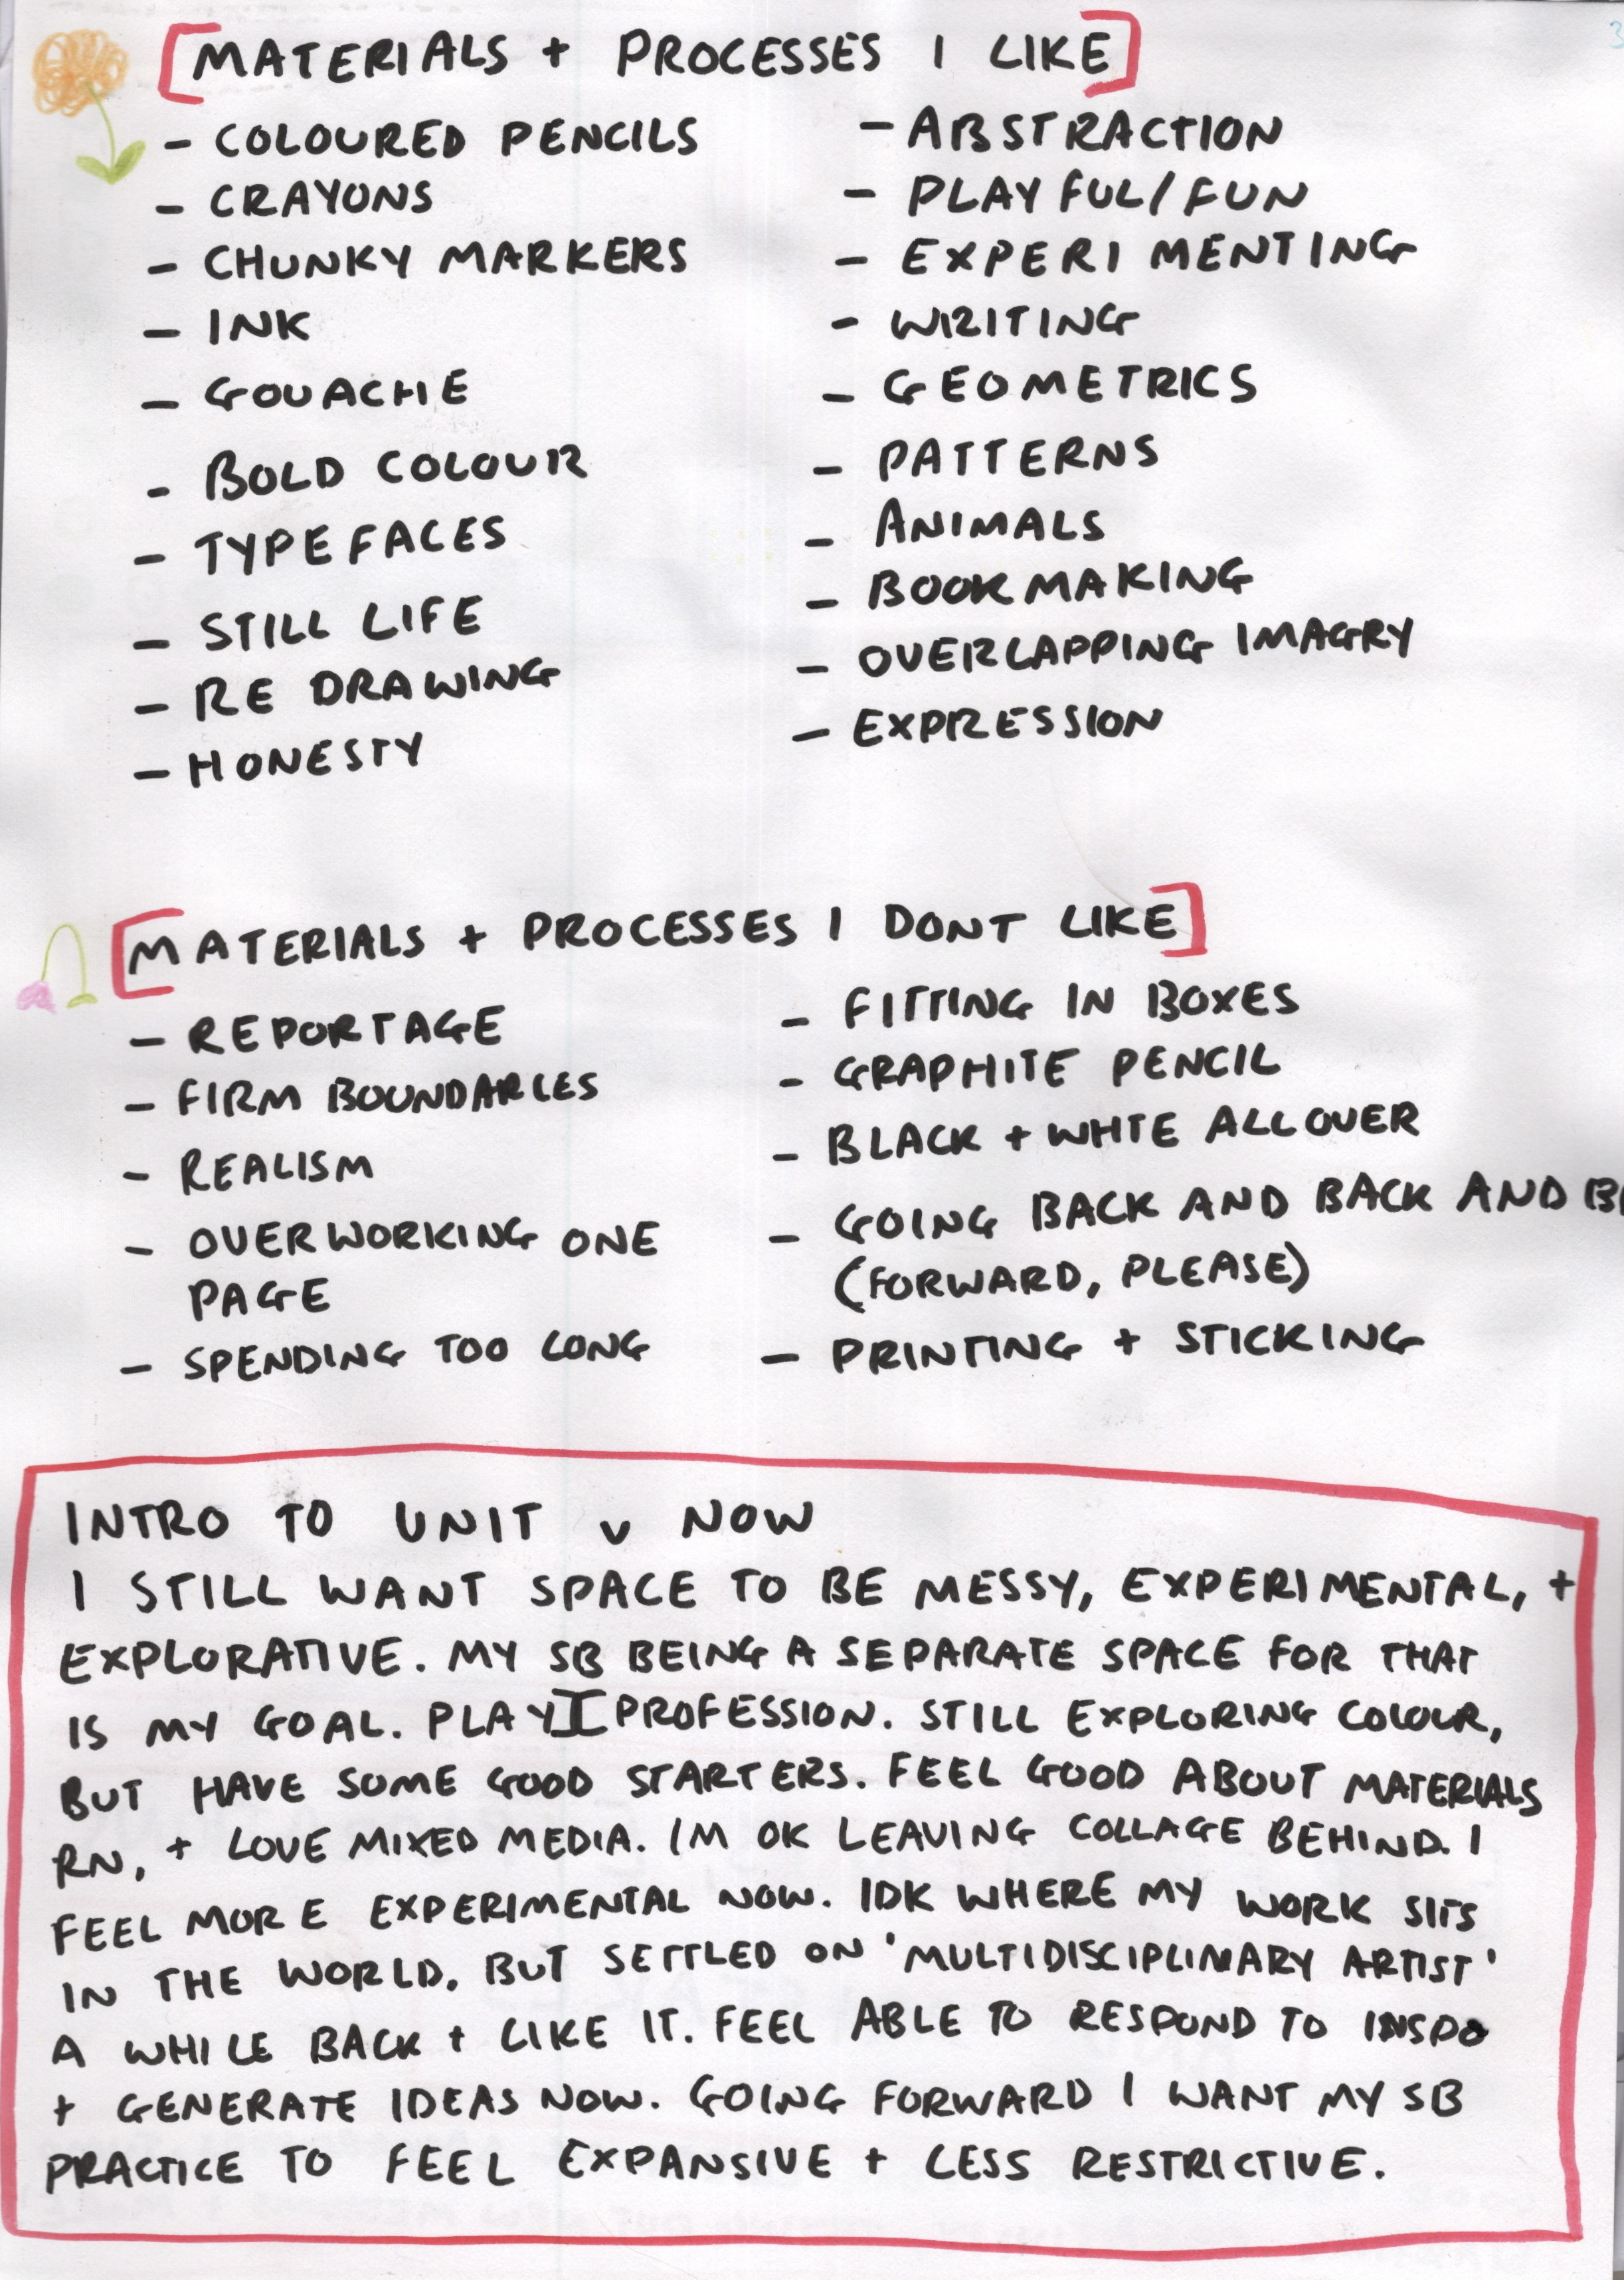 [MATERIALS + PROCESSES I LIKE]
- COLOURED PENCILS
- CRAYONS
- CHUNKY MARKERS
- INK
- GOUACHE
- BOLD COLOUR
- TYPEFACES
- STILL LIFE
- RE DRAWING
- HONESTY
- ABSTRACTION
- PLAYFUL/FUN
- EXPERIMENTING
- WRITING
- GEOMETRICS
- PATTERNS
- ANIMALS
- BOOKMAKING
- OVERLAPPING IMAGRY
- EXPRESSION
[MATERIALS + PROCESSES I DONT LIKE]
- REPORTAGE
- FIRM BOUNDARIES
- REALISM
- OVERWORKING ONE
PAGE
- SPENDING TOO LONG
- FITTING IN BOXES
- GRAPHITE PENCIL
- BLACK + WHITE ALL OVER
- GOING BACK AND BACK AND
(FORWARD, PLEASE)
- PRINTING + STICKING
INTRO TO UNIT v NOW
I STILL WANT SPACE TO BE MESSY, EXPERIMENTAL, +
EXPLORATIVE. MY SB BEING A SEPARATE SPACE FOR THAT
IS MY GOAL. PLAY PROFESSION. STILL EXPLORING COLOUR,
BUT HAVE SOME GOOD STARTERS. FEEL GOOD ABOUT MATERIALS
RN, + LOVE MIXED MEDIA. IM OK LEAVING COLLAGE BEHIND. I
FEEL MORE EXPERIMENTAL NOW. IDK WHERE MY WORK SITS
IN THE WORLD. BUT SETTLED ON 'MULTIDISCIPLINARY ARTIST'
A WHILE BACK + LIKE IT. FEEL ABLE TO RESPOND TO INSPO
+ GENERATE IDEAS NOW. GOING FORWARD I WANT MY SB
PRACTICE TO FEEL EXPANSIVE + LESS RESTRICTIVE.